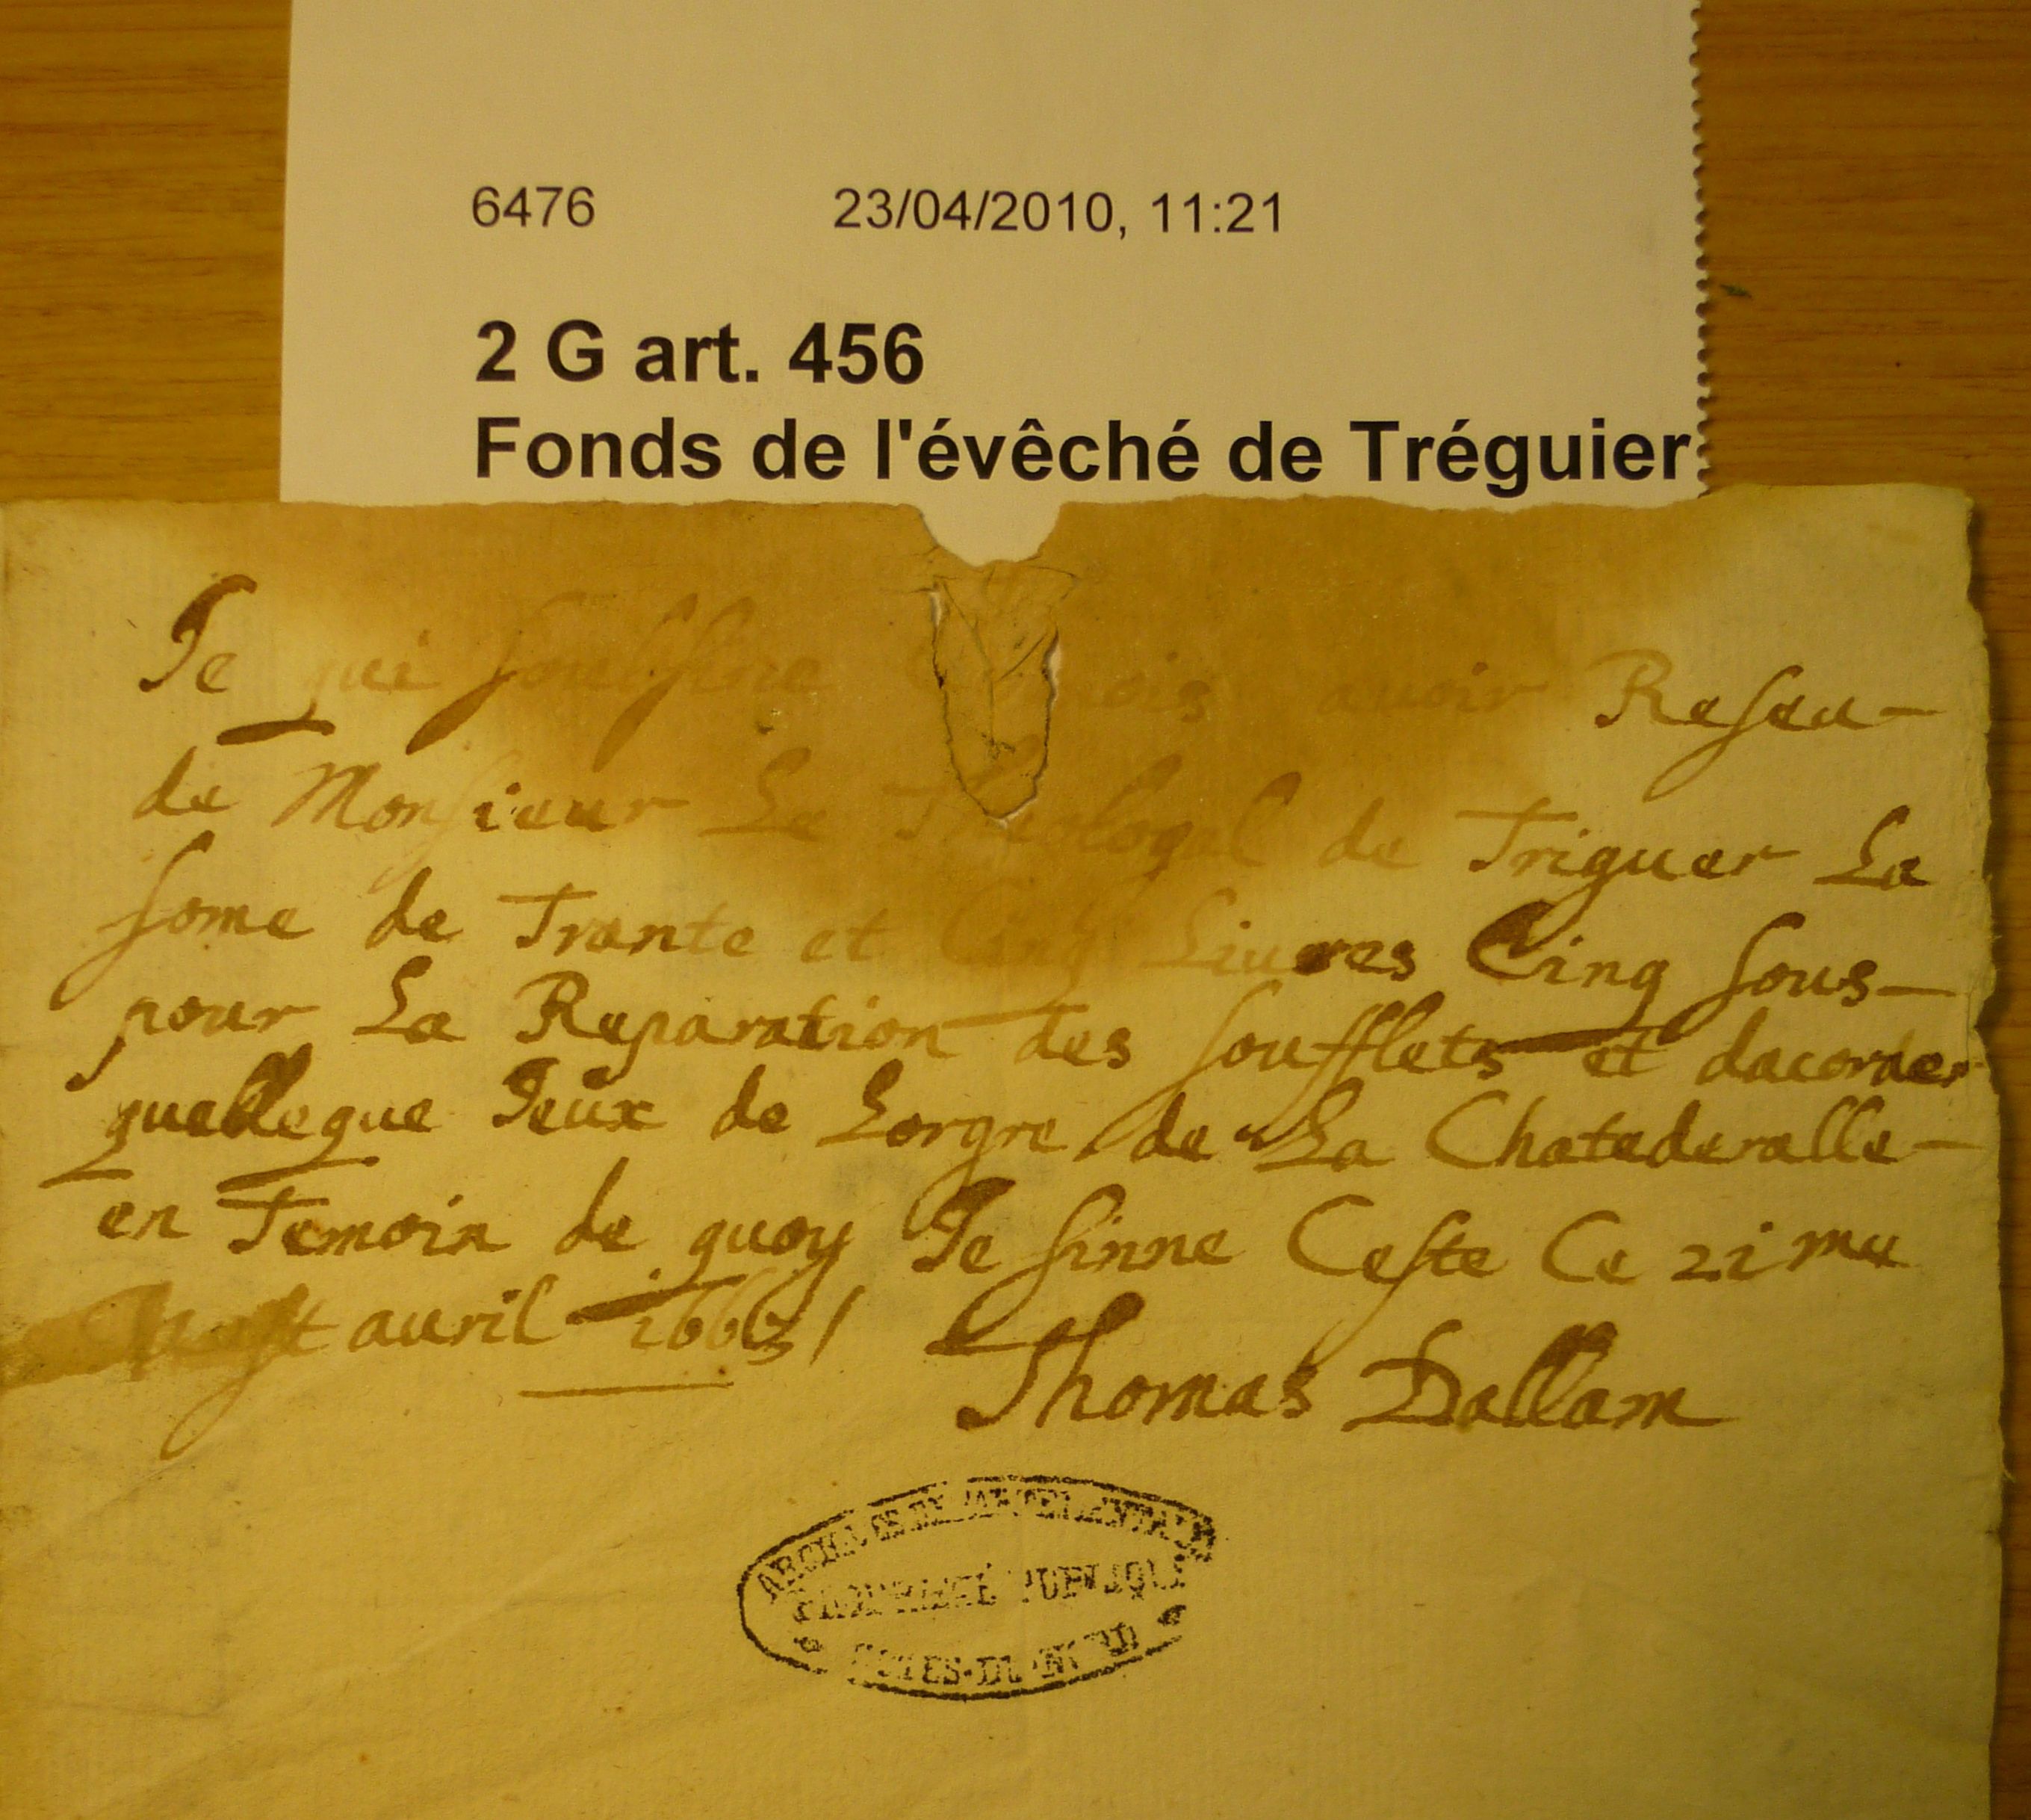 6476 23/04/2010, 11:21
2 G art. 456
Fonds de l'évêché de Tréguier
Je qui soubsine avoir Reseu-
de Monsieur Le Theologal de Triguer La
some de Trante et Cinq Livres Cinq sous-
pour La Reparation des soufflets et dacorder
quelleque Jeux de Lorgre de La Chatederalle-
en Temoin de quoy Je sinne Ceste Ce 21 me
avril
Thomas Dallam
ARCHIVES DEPARTEMENTALES
PROPRIÉTÉ PUBLIQUE
COTES-DU-NORD